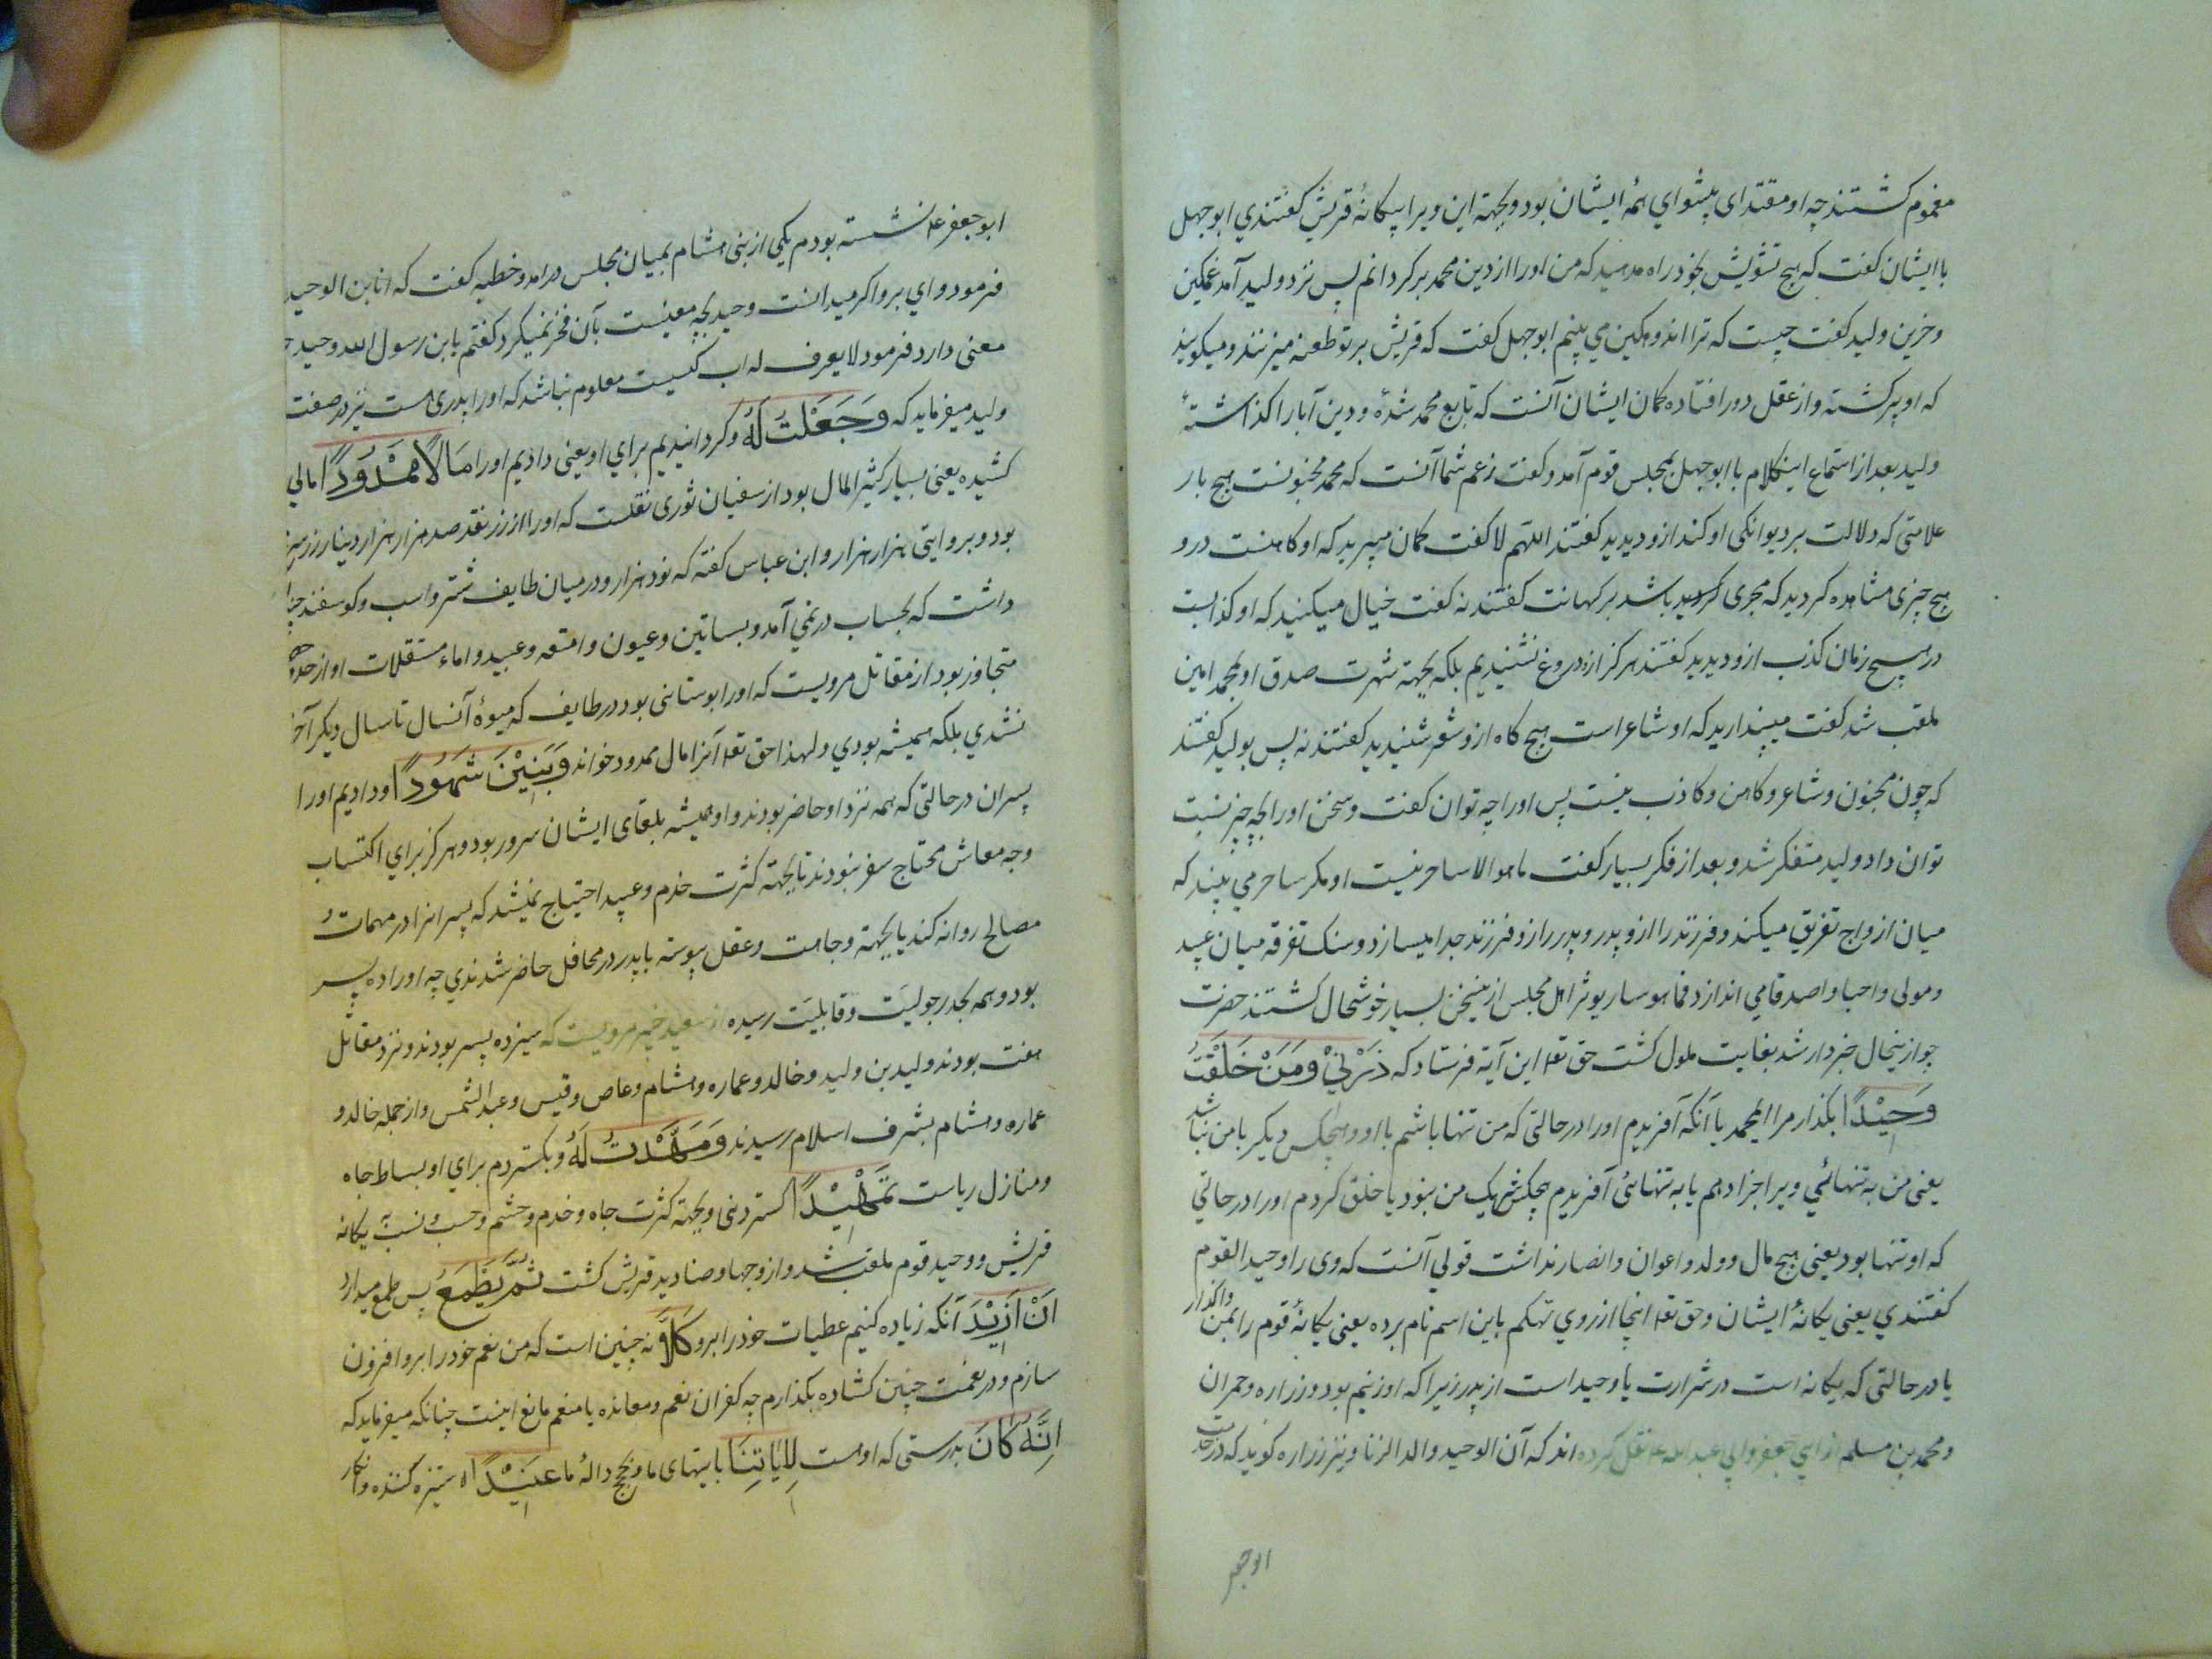 مغموم کشتند چه او مقتدای پیشوای ائمهٔ ایشان بود و بجهة این ویرا یکانهٔ قریش کفتندی ابوجهل
با ایشان کفت که هیچ تشویش بخود راه مدهید که من او را از دین محمد برکردانم پس نزد ولید آمد غمکین
و حزین ولید کفت چیست که ترا اندوهکین می بینم ابوجهل کفت که قریش بر تو طعنه میزنند و میکویند
که او پیر کشته و از عقل دور افتاده کمان ایشان آنست که تابع محمد شدهٔ و دین آبا را کذاشتهٔ
ولید بعد از استماع اینکلام با ابوجهل بمجلس قوم آمد و کفت زعم شما آنست که محمد مجنونست هیچ بار
علامتی که دلالت بر دیوانکی او کند ازو دیدید کفتند اللهم لا کفت کمان میبرید که او کاهنست درو
هیچ چیزی مشاهده کردید که مجری کردید باشد بر کهانت کفتند نه کفت خیال میکنید که او کذابست
در هیچ زمان کذب ازو دیدید کفتند هرکز ازو دروغ نشنیدیم بلکه بجهة شهرت صدق او بمحمد امین
ملقب شد کفت میپندارید که او شاعر است هیچ کاه ازو شعر شنیدید کفتند نه پس بولید کفتند
که چون مجنون و شاعر و کاهن و کاذب نیست پس او را چه توان کفت و سخن او را بچه چیز نسبت
توان داد ولید متفکر شد و بعد از فکر بسیار کفت ما هو الا ساحر نیست او مکر ساحر می بینید که
میان ازواج تفریق میکند و فرزند را از و پدر و پدر را از و فرزند جدا میسازد و سنک تفرقه میان عبید
و مولی و احبا و اصدقا می اندازد فما هو ساریوثر اهل مجلس ازینسخن بسیار خوشحال کشتند حضرت
چو ازینحال خبردار شد بغایت ملول کشت حق تعا این آیة فرستاد که ذَرْنِیْ وَمَنْ خَلَقْتُ
وَحِیْدًا بکذار مرا ایمحمد با آنکه آفریدم او را در حالتی که من تنها باشم با او و هیچکس دیکر با من نباشد
یعنی من به تنهائی ویرا جزا دهم یا به تنهائی آفریدم هیچکس شریک من نبود یا خلق کردم او را در حالتی
که او تنها بود یعنی هیچ مال و ولد و اعوان و انصار نداشت قولی آنست که وی را وحید القوم
کفتندی یعنی یکانهٔ ایشان و حق تعا اینجا از روی تهکم باین اسم نام برده یعنی یکانهٔ قوم را بمن واکذار
یا در حالتی که یکانه است در شرارت یا وحید است از پدر زیرا که او زنیم بود و زراره و حمران
و محمد بن مسلم از ابی جعفر و ابی عبدالله عا نقل کرده اند که آن الوحید والد الزنا و نیز زراره کوید که در خدمت
ابوجعفر
ابو جعفر عا نشسته بودم یکی از بنی هشام بمیان مجلس درامد و خطبه کفت که انا بن الوحید
فرمود وای برو اکر میدانست وحید بچه معنیست بآن فخر نمیکرد کفتم یابن رسول الله وحید
معنی دارد فرمود لا یعرف له اب کسیست معلوم نباشد که او را پدری هست نیز در صفت
ولید میفرماید که وَجَعَلْتُ لَهُ و کردانیدیم برای او یعنی دادیم او را مَالًا مَمْدُوْدًا مالی
کشیده یعنی بسیار کثیر المال بود از سفیان ثوری نقلست که او را از زر نقد صد هزار هزار دینار زر سرخ
بود و بروایتی هزار هزار و ابن عباس کفته که نود هزار و در میان طایف شتر و اسب و کوسفند
داشت که بحساب در نمی آمد و بساتین و عیون و امتعه و عبید و اماء مستقلات او از حد
متجاوز بود از مقاتل مرویست که او را بوستانی بود در طایف که میوهٔ آنسال تا سال دیکر آخر
نشدی بلکه همیشه بودی و لهذا حق تعا آنرا مال ممدود خواند وَبَنِیْنَ شُهُوْدًا و دادیم او را
پسران در حالتی که همه نزد او حاضر بودند و او همیشه بلقای ایشان سرور بود و هرکز برای اکتساب
وجه معاش محتاج سفر نبودند تا بجهة کثرت خدم و عبید احتیاج نمیشد که پسرانرا در مهمات و
مصالح روانه کند یا بجهة وجاهت و عقل پیوسته با پدر در محافل حاضر شدندی چه او را ده پسر
بود و همه بحد رجولیّت و قابلیّت رسیده از سعید خبر مرویست که سیزده پسر بودند و نزد مقاتل
هفت بودند ولید بن ولید و خالد و عماره و هشام و عاص و قیس و عبدالشمس و از جمله خالد و
عماره و هشام بشرف اسلام رسیدند وَمَهَّدْتُ لَهُ و بکستردم برای او بساط جاه
و منازل ریاست تَمْهِیْدًا کستردنی و بجهة کثرت جاه و خدم و حشم و حسب و نسب یکانه
قریش و وحید قوم ملقب شد و از وجها و صنادید قریش کشت ثُمَّ یَطْمَعُ پس طمع میدارد
اَنْ اَزِیْدَ آنکه زیاده کنیم عطیات خود را برو کَلَّا نه چنین است که من نعم خود را برو افزون
سازم و در نعمت چنین کشاده بکذارم چه کفران نعم و معانده با منعم مانع اینست چنانکه میفرماید که
اِنَّهُ کَانَ بدرستی که او هست لِاٰیَاتِنَا بایتهای ما و حجج دالهٔ ما عَنِیْدًا ستیزه کننده و انکار